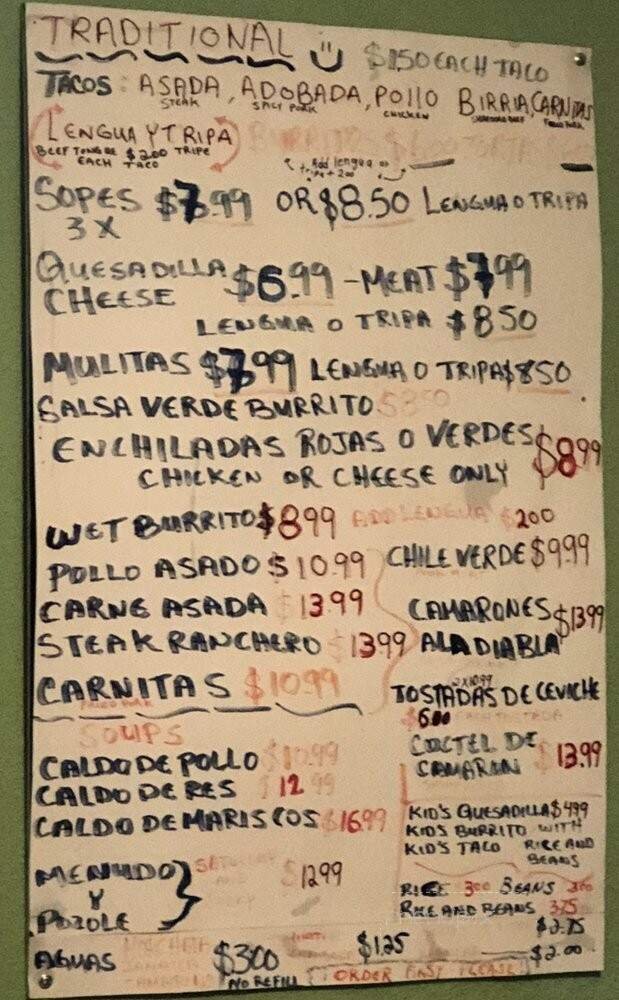 TRADITIONAL $1.50 EACH TACO
TACOS: ASADA, ADOBADA, POLLO BIRRIA, CARNITAS
STEAK SPICY PORK CHICKEN SHREDDED BEEF FRIED PORK
LENGUA Y TRIPA
BEEF TONGUE $2.00 TRIPE
EACH TACO
Add lengua o
tripa + 200
SOPES $7.99 OR $8.50 LENGUA O TRIPA
3X
QUESADILLA $6.99 - MEAT $7.99
CHEESE
LENGUA O TRIPA $850
MULITAS $7.99 LENGUA O TRIPA $850
SALSA VERDE BURRITO $350
ENCHILADAS ROJAS O VERDES $899
CHICKEN OR CHEESE ONLY
WET BURRITO $899 ADD LENGUA $200
POLLO ASADO $10.99 CHILE VERDE $9.99
CARNE ASADA 13.99 CAMARONES $13.99
STEAK RANCHERO 13.99 ALA DIABLA
CARNITAS $10.99
FRIED PORK
TOSTADAS DE CEVICHE
$6.00
SOUPS
CALDO DE POLLO $10.99 COCTEL DE 13.99
CALDO DE RES 12.99 CAMARON
CALDO DE MARISCOS 16.99
KID'S QUESADILLA $499
KID'S BURRITO WITH
KID'S TACO RICE AND
BEANS
MENUDO
Y
POZOLE
$1299
RICE 300 BEANS 300
RICE AND BEANS 375
$2.75
AGUAS HORCHATA
$300 $1.25 $2.00
NO REFILL
ORDER FIRST PLEASE